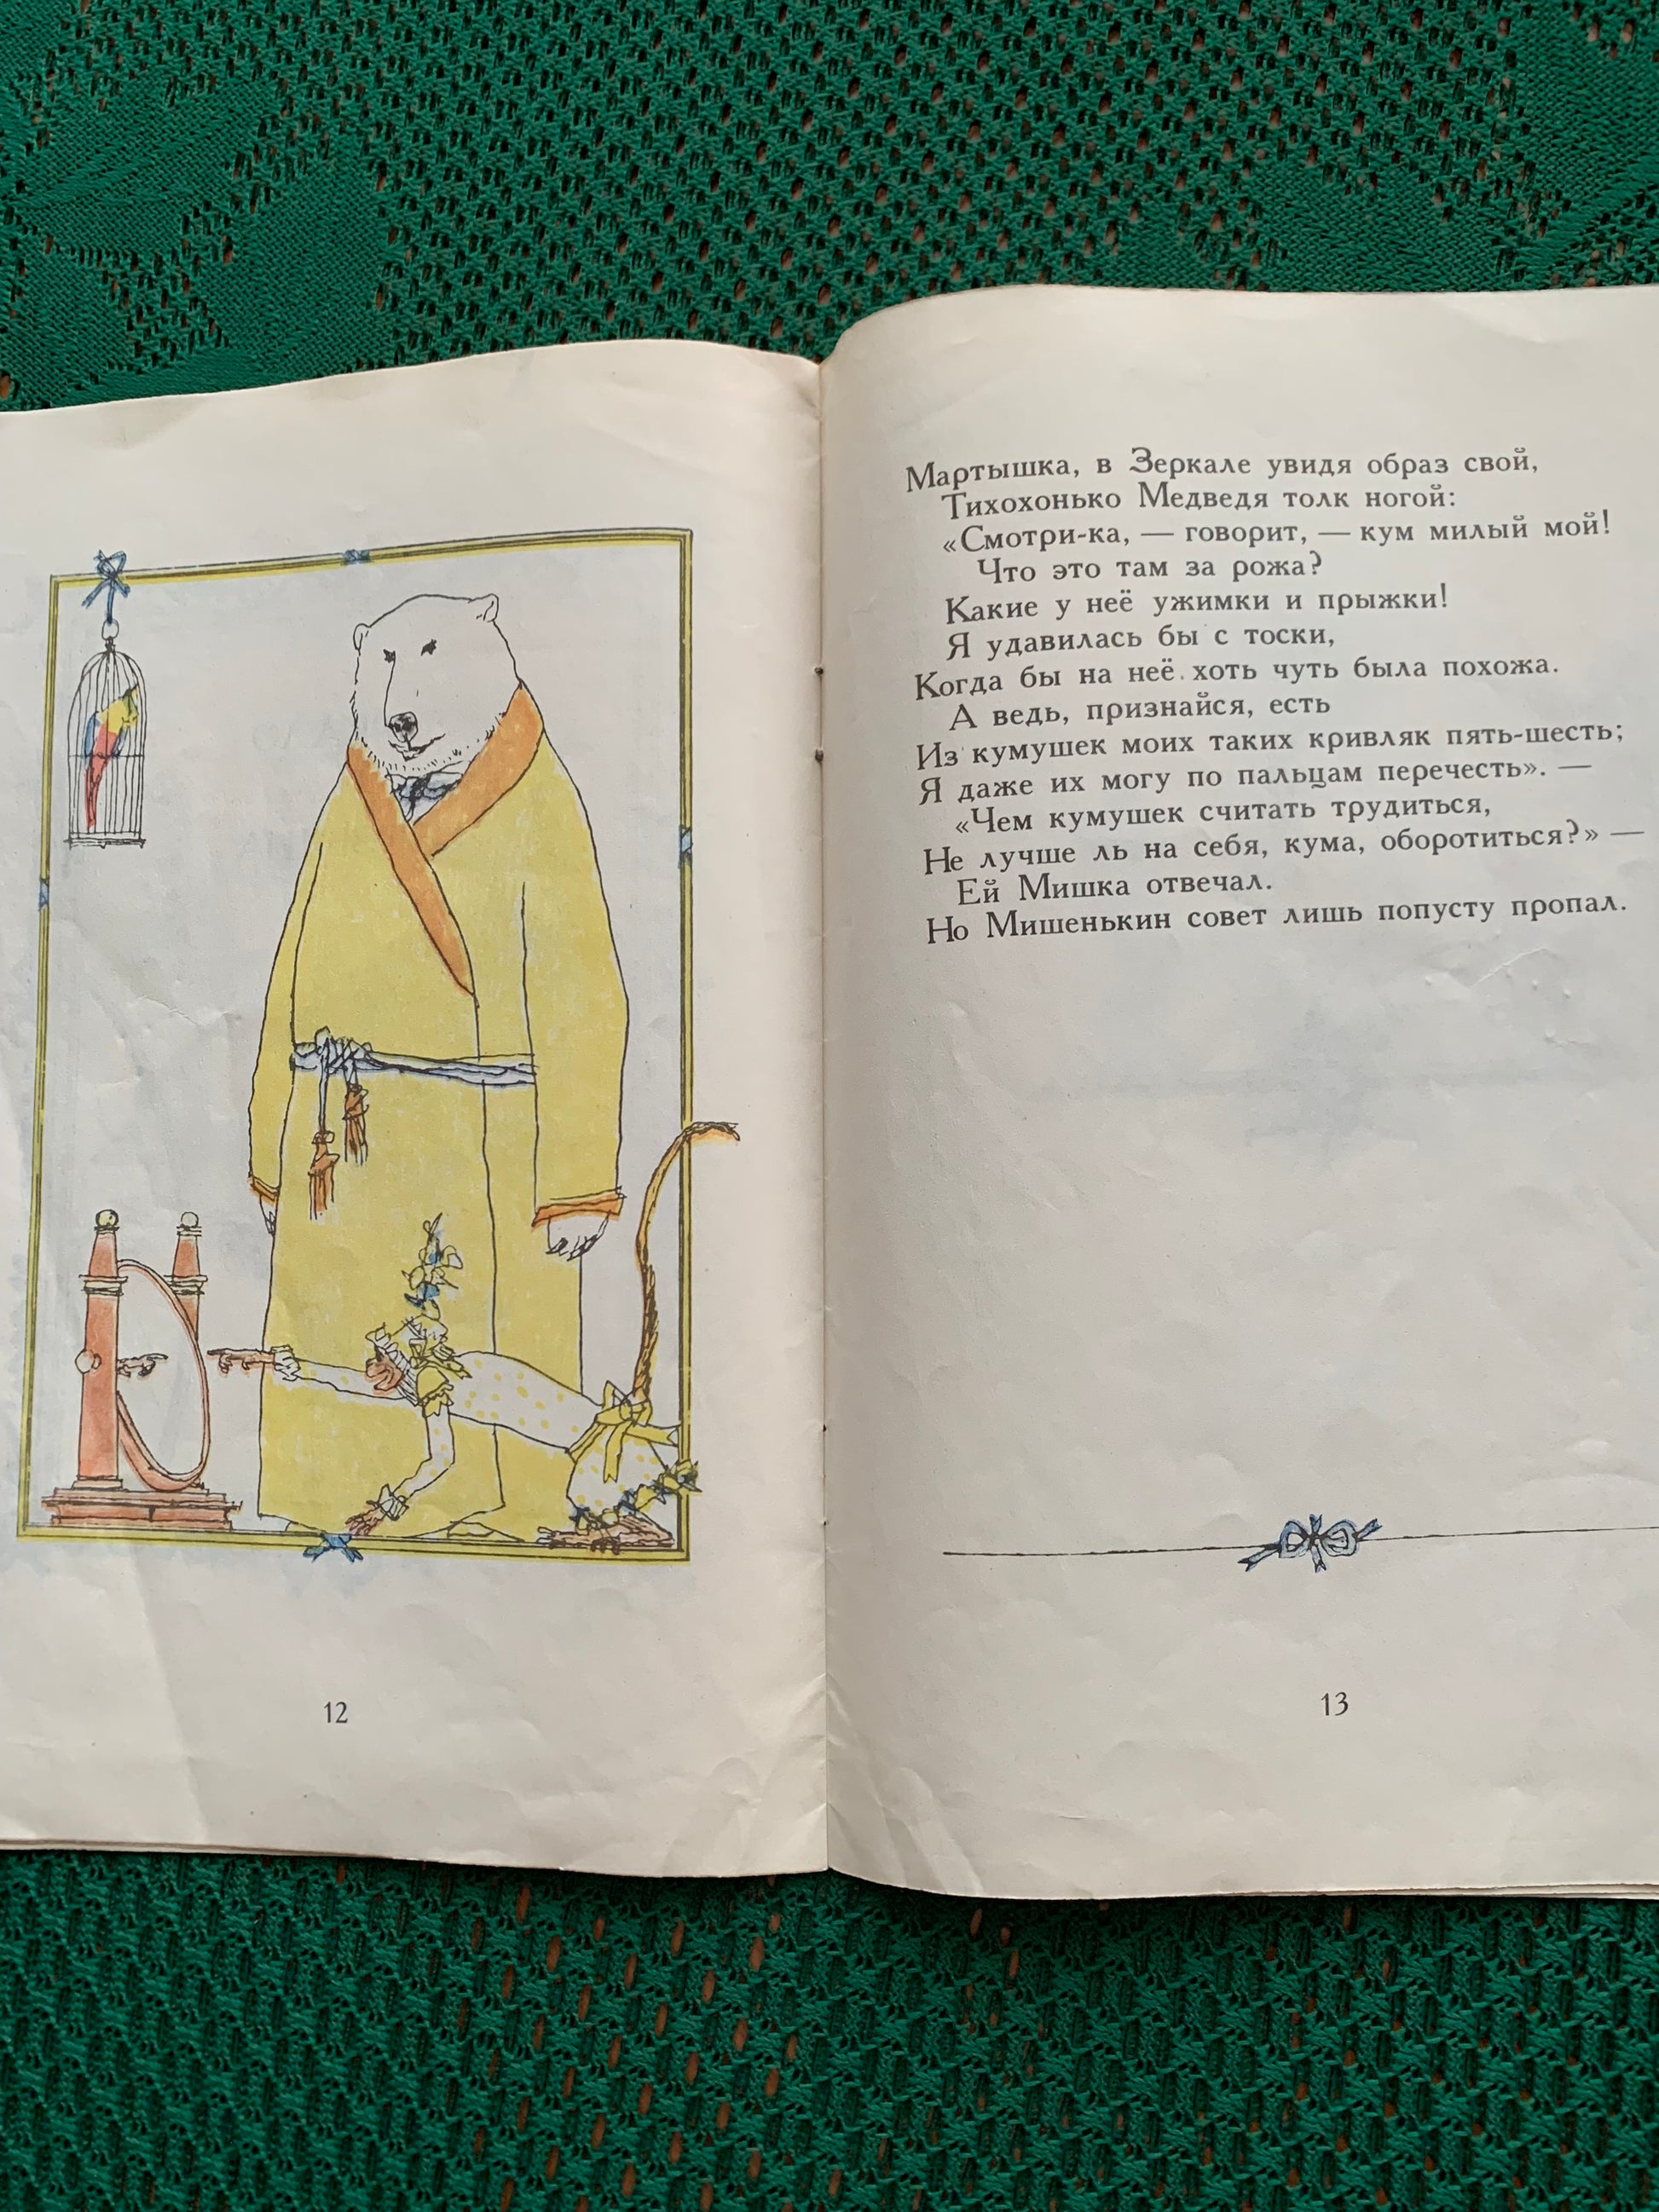 Мартышка, в Зеркале увидя образ свой,
Тихохонько Медведя толк ногой:
«Смотри-ка, — говорит, — кум милый мой!
Что это там за рожа?
Какие у неё ужимки и прыжки!
Я удавилась бы с тоски,
Когда бы на неё хоть чуть была похожа.
А ведь, признайся, есть
Из кумушек моих таких кривляк пять-шесть;
Я даже их могу по пальцам перечесть». —
«Чем кумушек считать трудиться,
Не лучше ль на себя, кума, оборотиться?» —
Ей Мишка отвечал.
Но Мишенькин совет лишь попусту пропал.
12
13